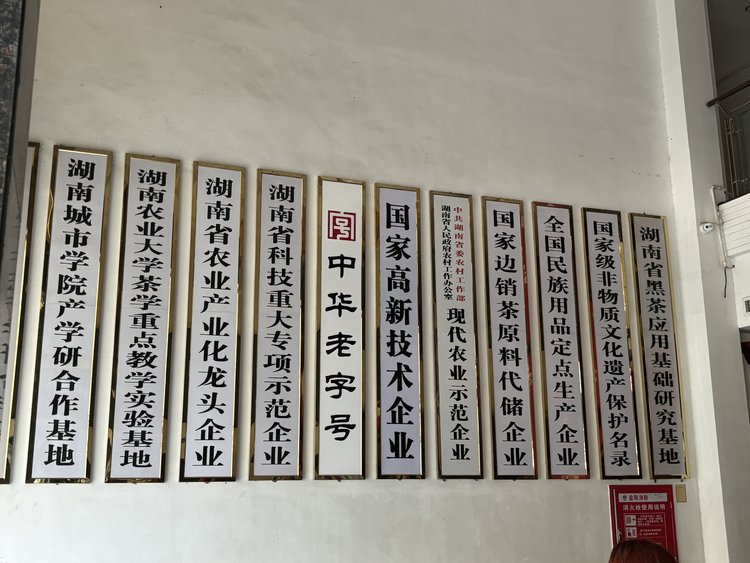 湖南城市学院产学研合作基地
湖南农业大学茶学重点教学实验基地
湖南省农业产业化龙头企业
湖南省科技重大专项示范企业
中华老字号
国家高新技术企业
中共湖南省委农村工作部
湖南省人民政府农村工作办公室
现代农业示范企业
国家边销茶原料代储企业
全国民族用品定点生产企业
国家级非物质文化遗产保护名录
湖南省黑茶应用基础研究基地
益阳消防
消火栓使用说明